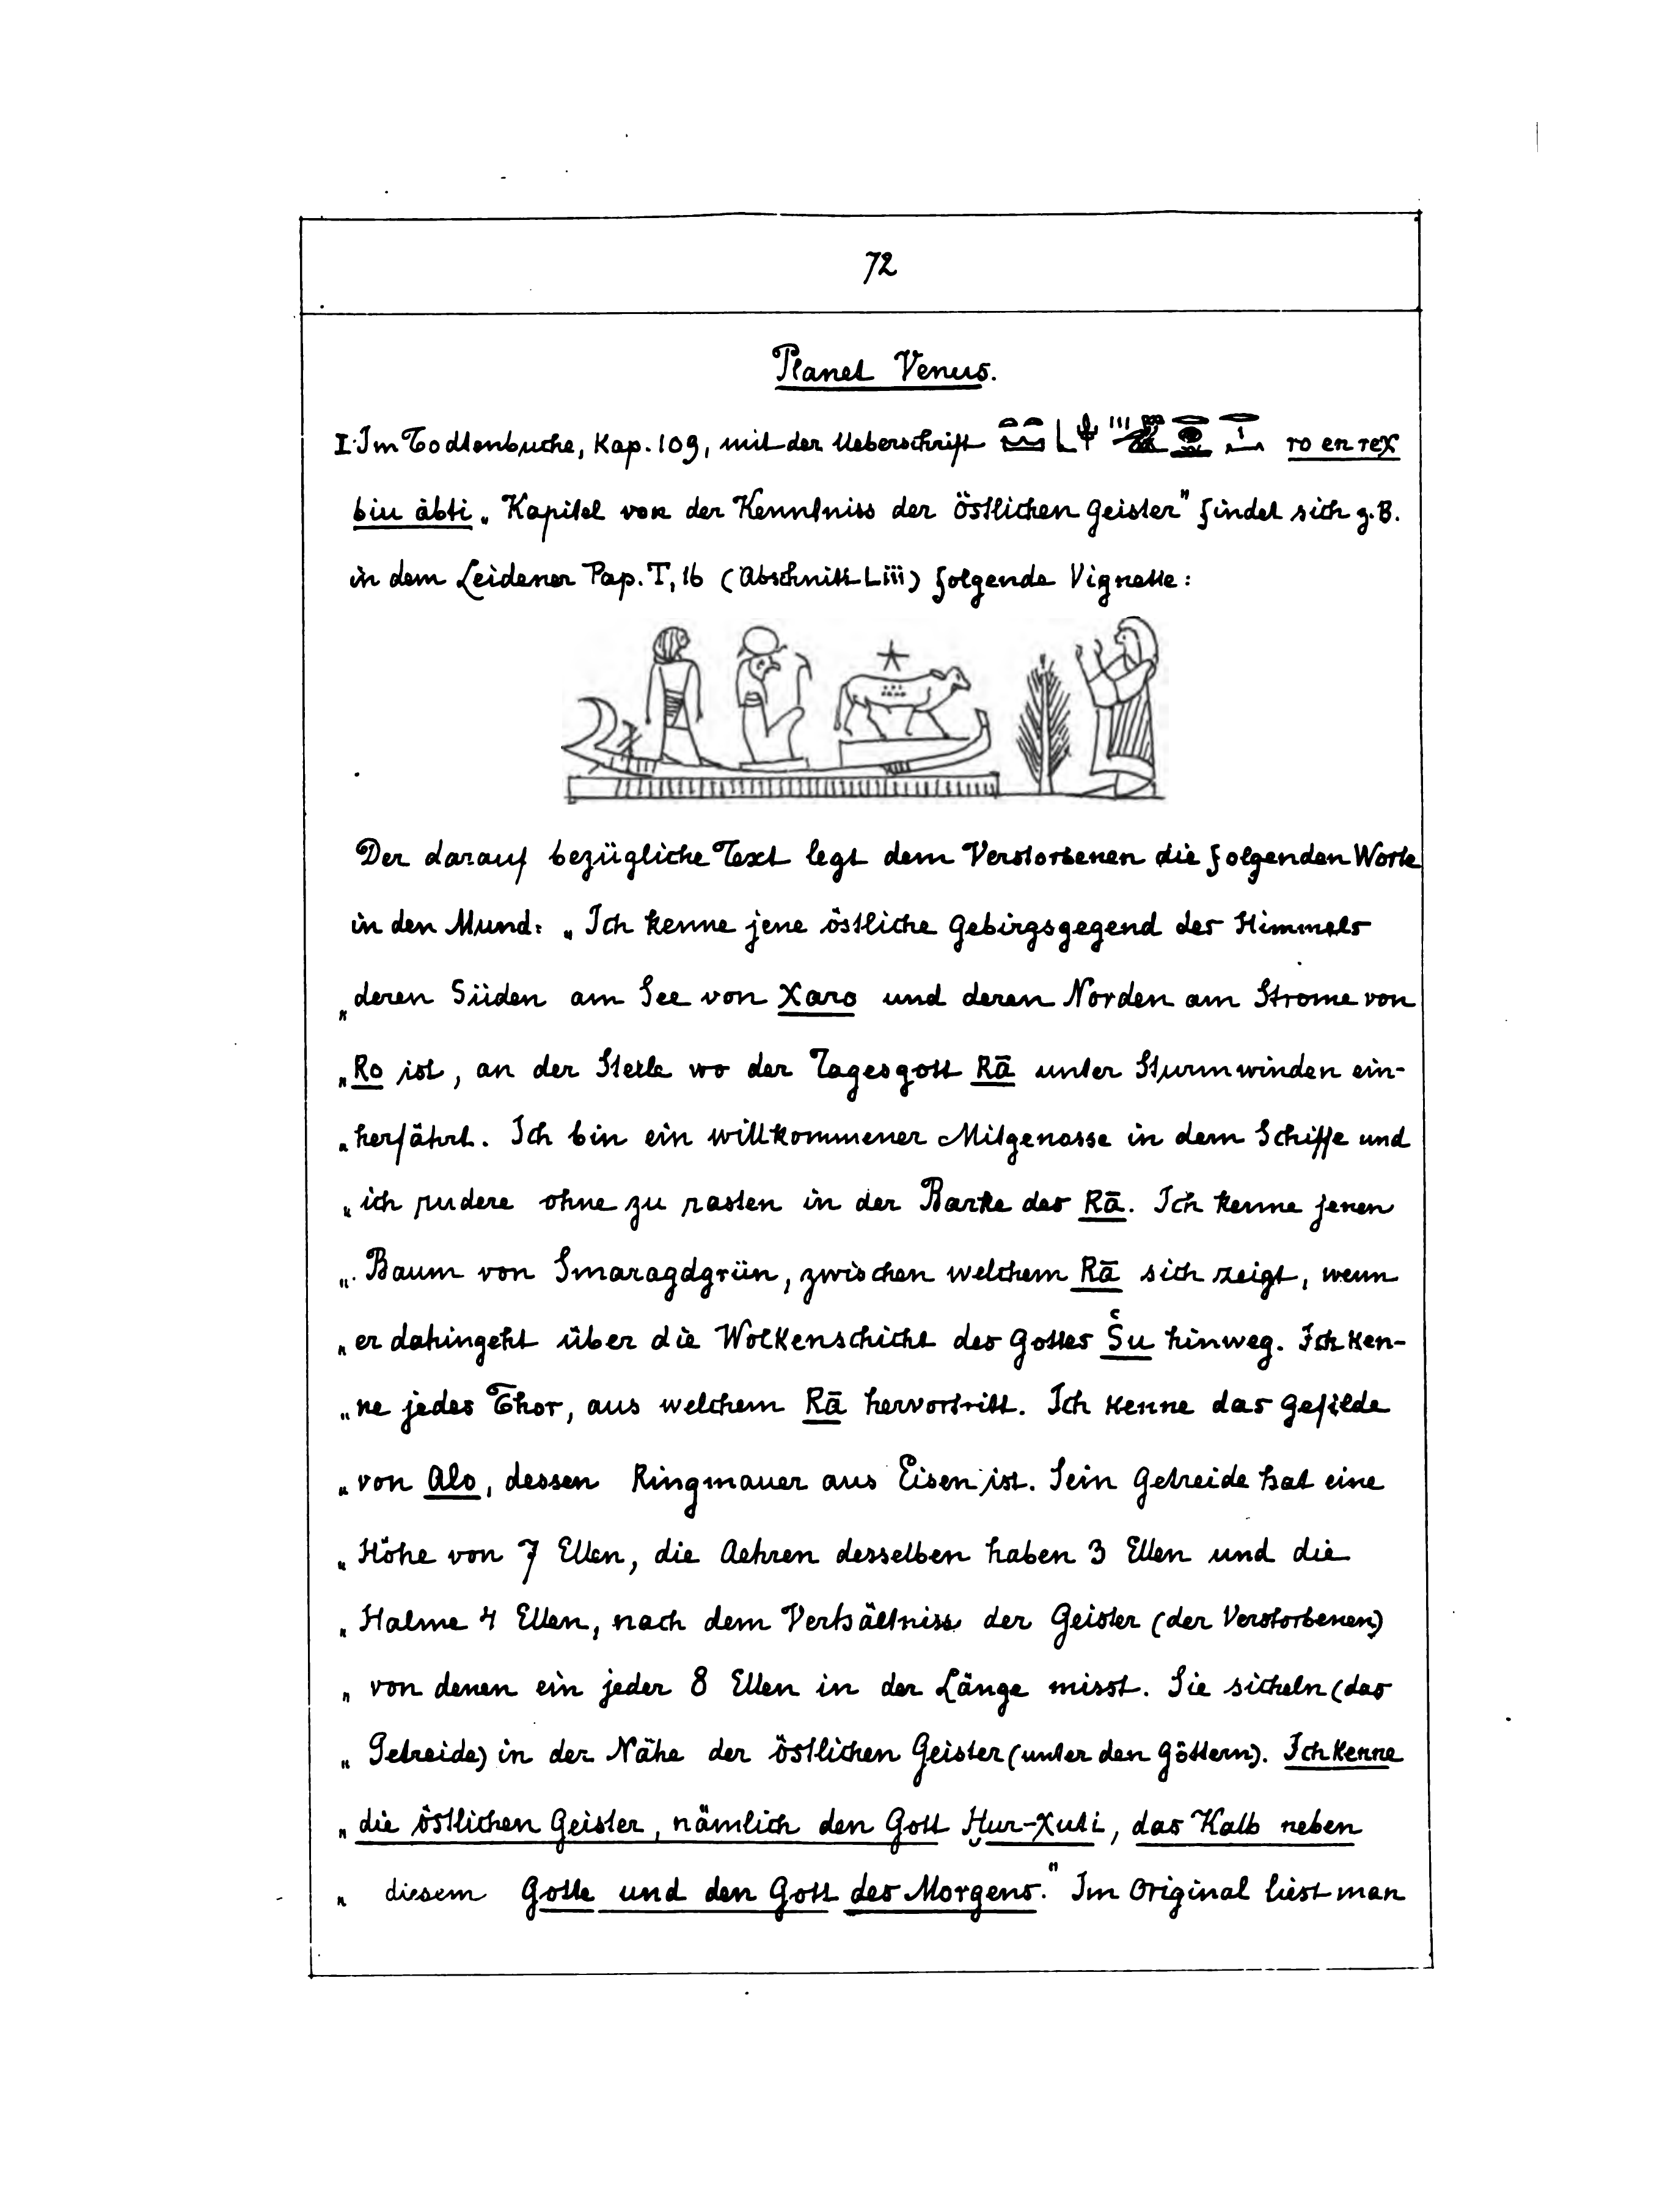 72
Planet Venus.
I. Im Todtenbuche, Kap. 109, mit der Ueberschrift ro en rex
biu äbti „Kapitel von der Kenntniss der östlichen Geister" findet sich z. B.
in dem Leidener Pap. T, 16 (Abschnitt Liii) folgende Vignette:
Der darauf bezügliche Text legt dem Verstorbenen die folgenden Worte
in den Mund: „Ich kenne jene östliche Gebirgsgegend des Himmels
„deren Süden am See von Xaro und deren Norden am Strome von
„Ro ist, an der Stelle wo der Tagesgott Rā unter Sturmwinden ein-
„herfährt. Ich bin ein willkommener Mitgenosse in dem Schiffe und
„ich rudere ohne zu rasten in der Barke des Rā. Ich kenne jenen
„Baum von Smaragdgrün, zwischen welchem Rā sich zeigt, wenn
„er dahingeht über die Wolkenschicht des Gottes Šu hinweg. Ich ken-
„ne jedes Thor, aus welchem Rā hervortritt. Ich kenne das Gefilde
„von Alo, dessen Ringmauer aus Eisen ist. Sein Getreide hat eine
„Höhe von 7 Ellen, die Aehren desselben haben 3 Ellen und die
„Halme 4 Ellen, nach dem Verhältniss der Geister (der Verstorbenen)
„von denen ein jeder 8 Ellen in der Länge misst. Sie sicheln (das
„Getreide) in der Nähe der östlichen Geister (unter den Göttern). Ich kenne
„die östlichen Geister, nämlich den Gott Hur-Xuti, das Kalb neben
„diesem Gotte und den Gott des Morgens." Im Original liest man